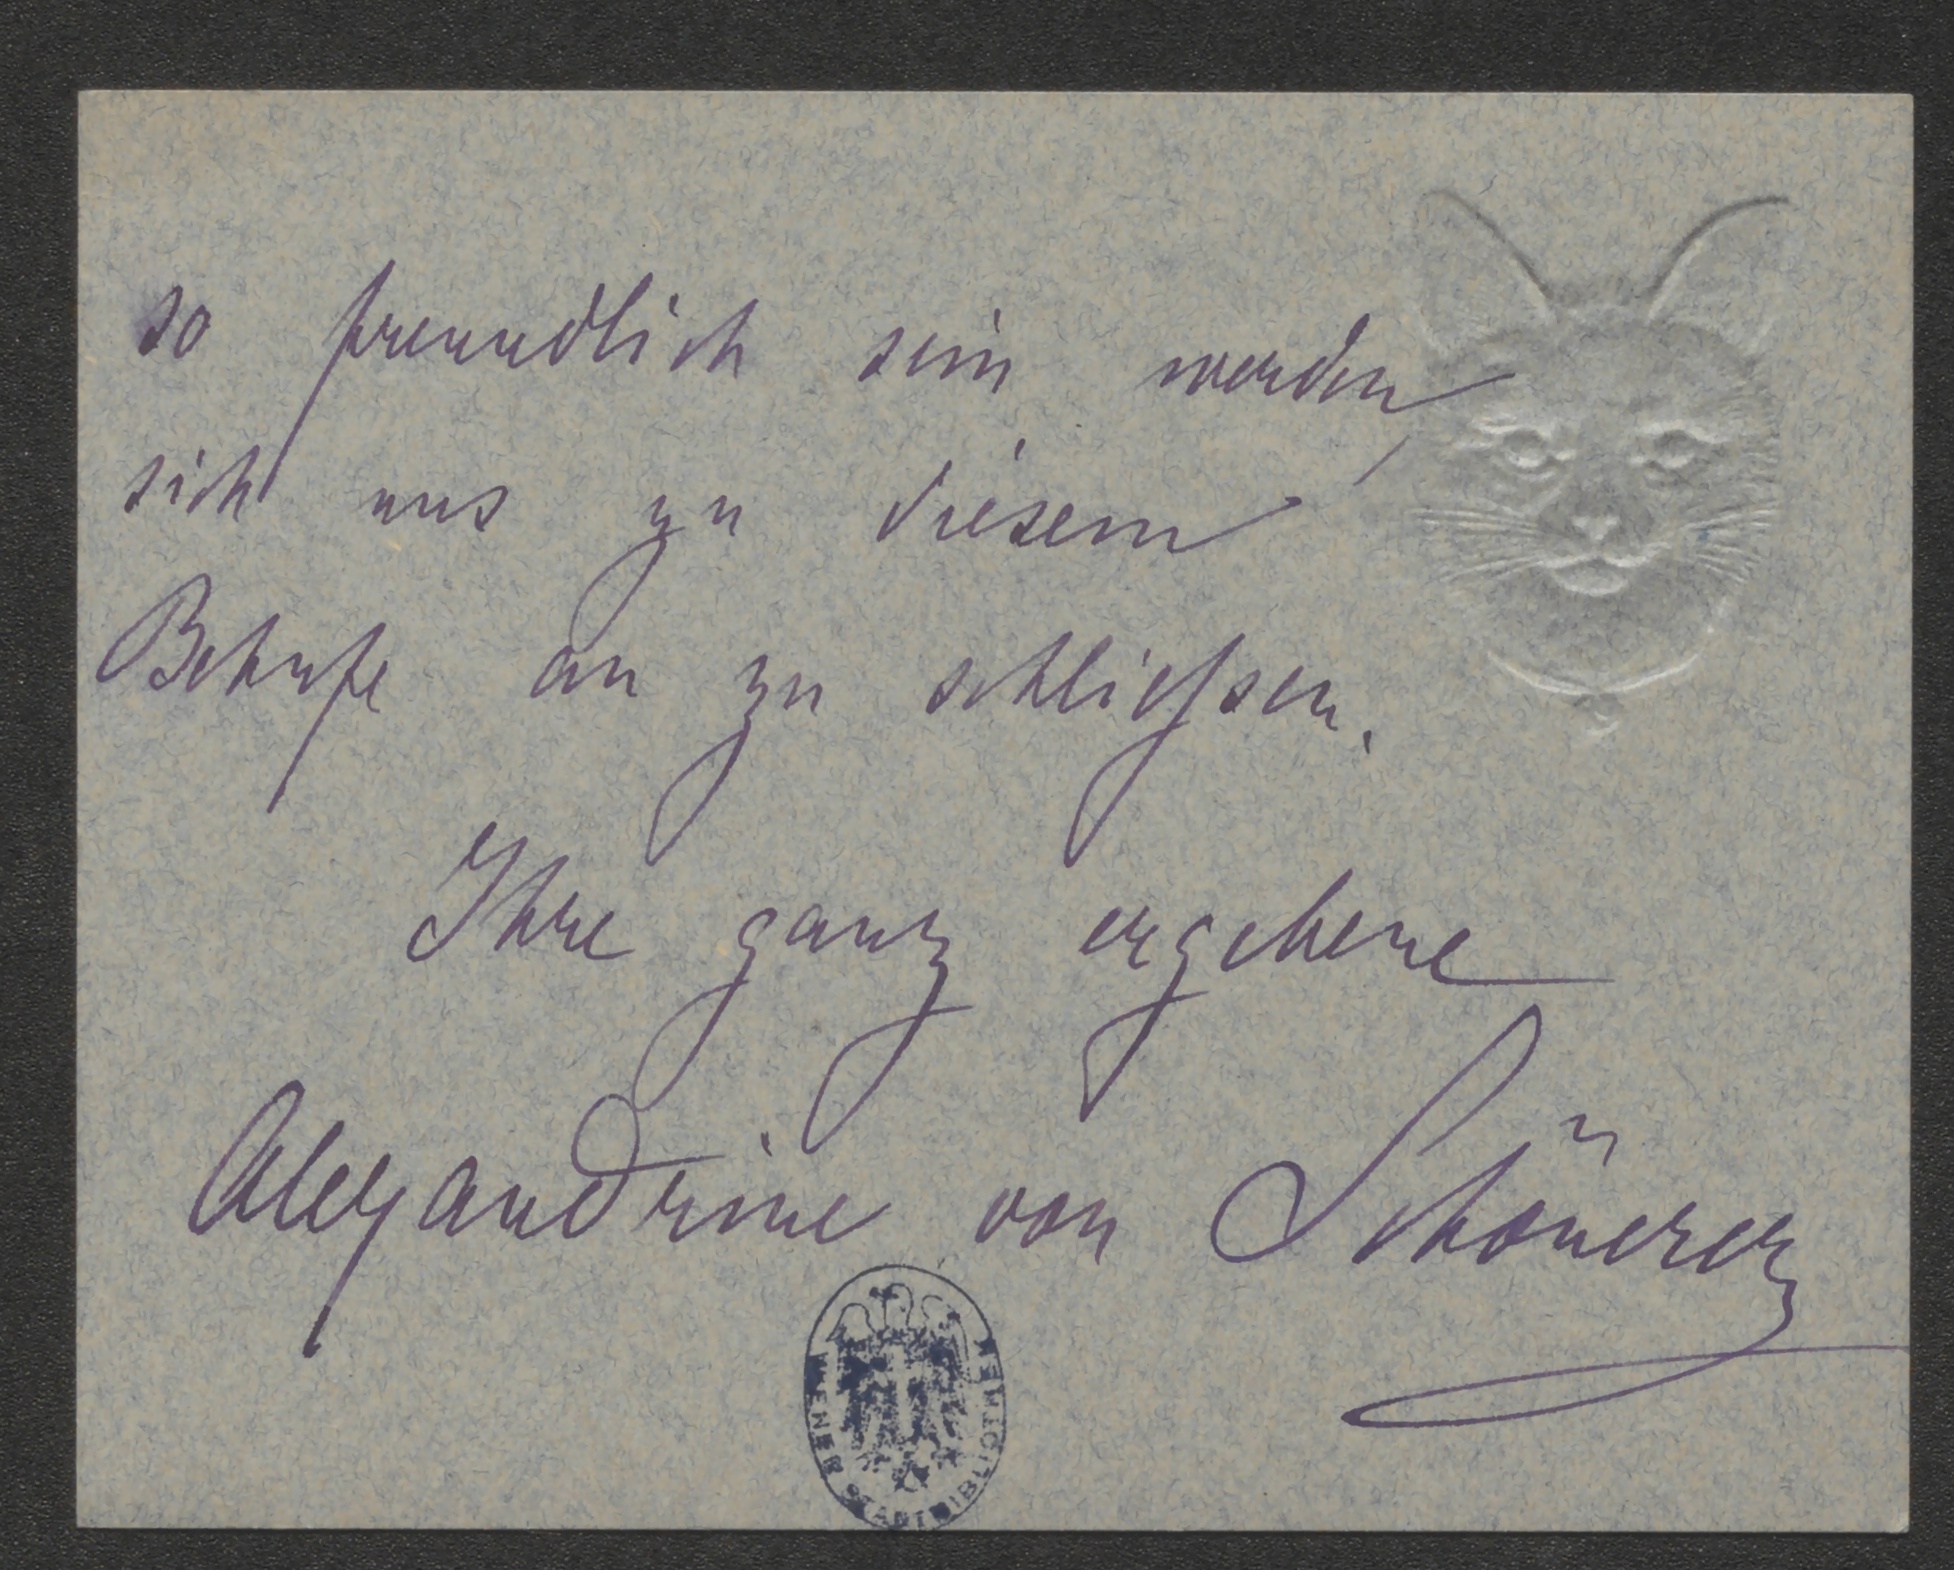 so freundlich sein werden,
sich uns zu diesem
Behufe an zu schließen.
Ihre ganz ergebene
Alexandrine von Schönerer
WIENER STADTBIBLIOTHEK